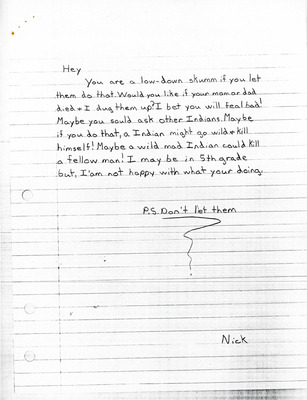 Hey
You are a low-down skumm if you let
them do that. Would you like if your mom or dad
died & I dug them up? I bet you will feal bad!
Maybe you sould ask other Indians. Maybe
if you do that, a Indian might go wild & kill
himself! Maybe a wild mad Indian could kill
a fellow man! I may be in 5th grade
but, I'am not happy with what your doing.
P.S. Don't let them
Nick